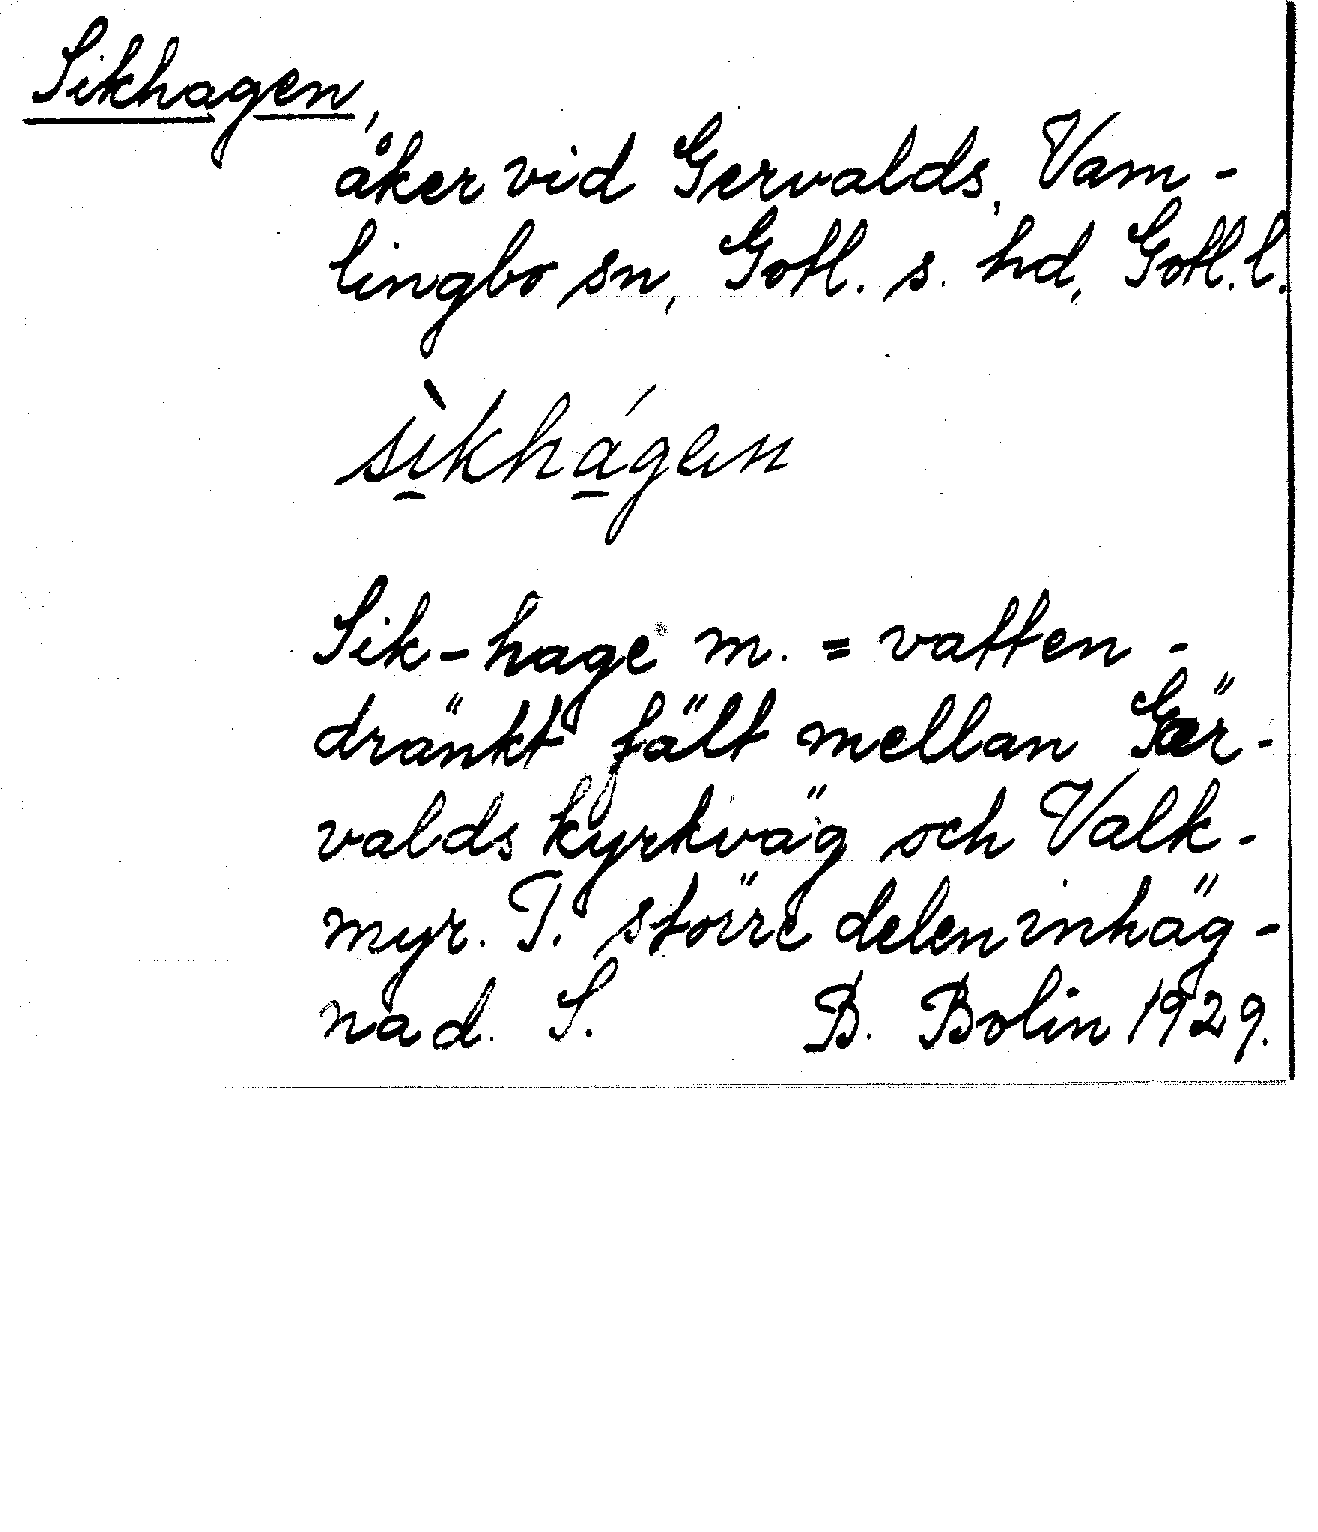 Sikhagen,
åker vid Gervalds, Vam-
lingbo sn, Gotl. s. hd, Gotl. l.
sìkhágen
Sik-hage m. = vatten-
dränkt fält mellan Gär-
valds kyrkväg och Valk-
myr. T. större delen inhäg-
nad. S. B. Bolin 1929.